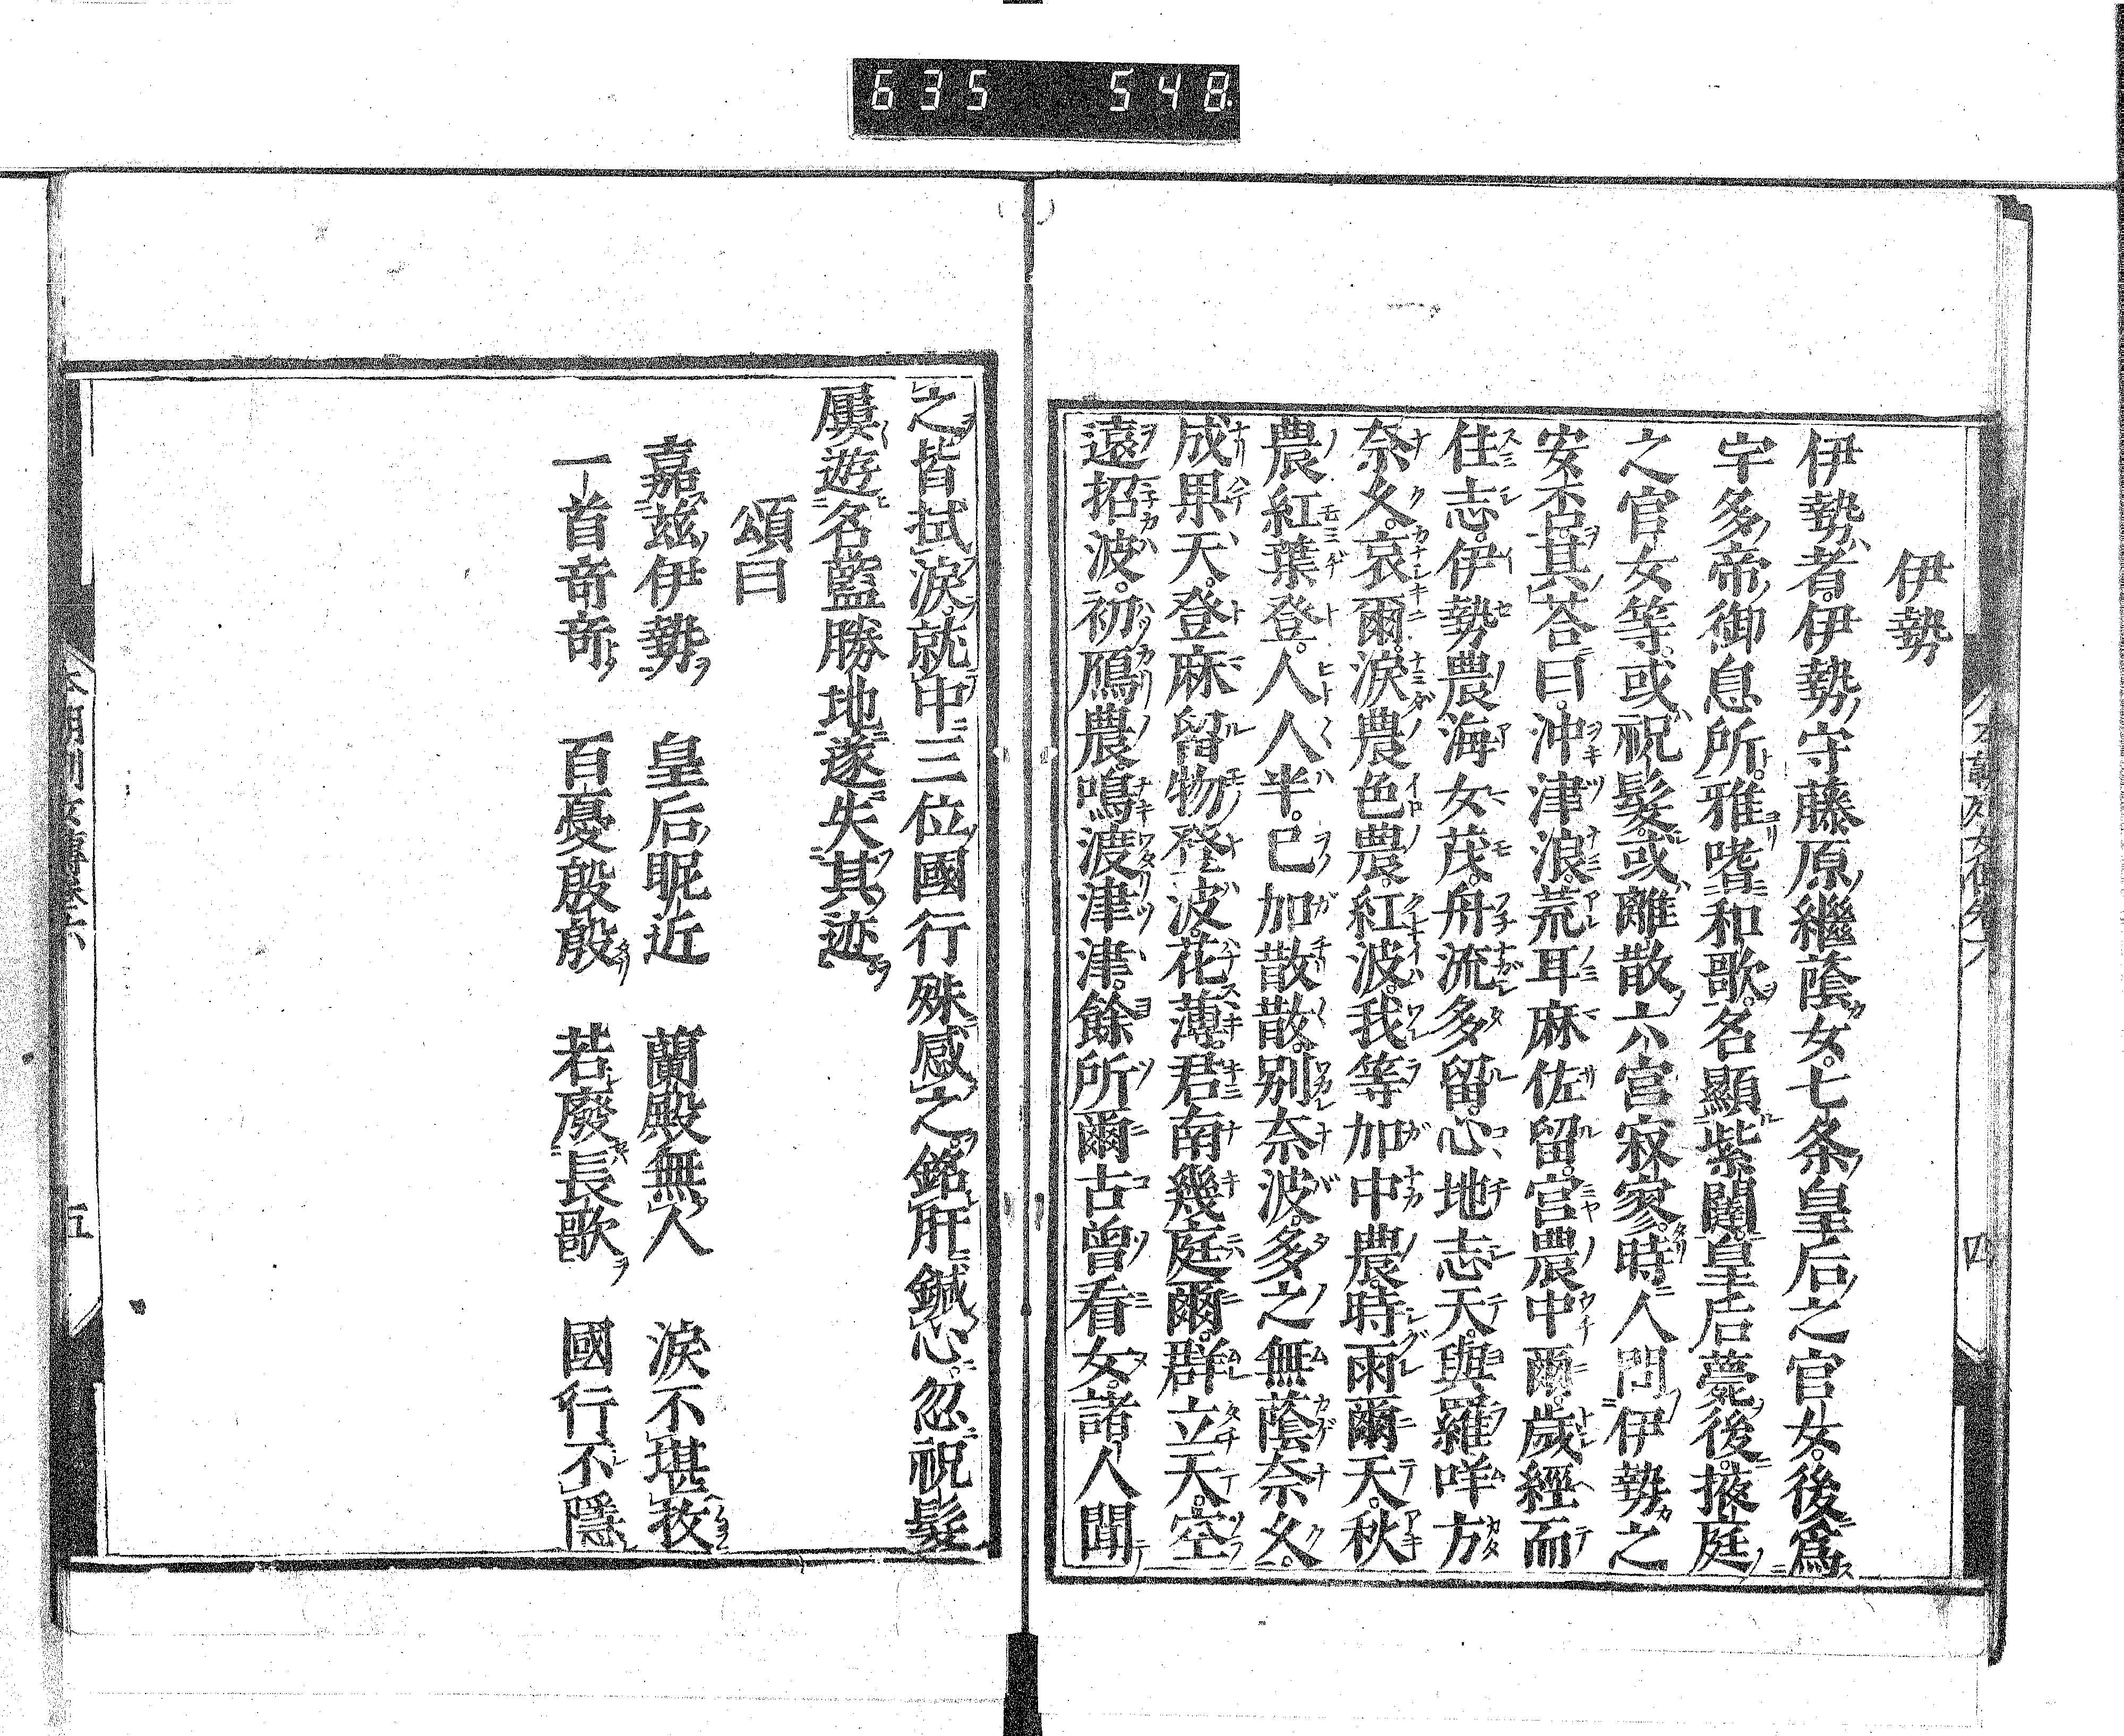 635 548
伊勢
伊勢者。伊勢守藤原繼蔭女。七条皇后之官女。後爲
宇多帝御息所。雅嗜和歌。名顯紫闕。皇后薨後。掖庭
之官女等。或祝髮。或離散。六宮寂寥。時人問伊勢之
安否。其荅曰。沖津浪。荒耳麻佐留。宮農中爾。歲經而
住志。伊勢農海女茂。舟流多留。心地志天。與羅咩方
奈久。哀爾。淚農色農。紅波。我等加中農。時雨爾天。秋
農紅葉登。人人半。已加散散。别奈波。多之無蔭奈久。
成果天。登麻留物登波。花薄。君南幾庭爾。群立天。空
遠招波。初鴈農。鳴渡津津。餘所爾古曾看女。諸人聞
之皆拭淚。就中三位國行殊感之。銘肝鍼心。忽祝髮
屢遊名藍勝地。遂失其迹。
頌曰
嘉茲伊勢 皇后昵近 蘭殿無人 淚不堪孜
一首竒竒 百憂殷殷 若廢長歌 國行不隱
四
五